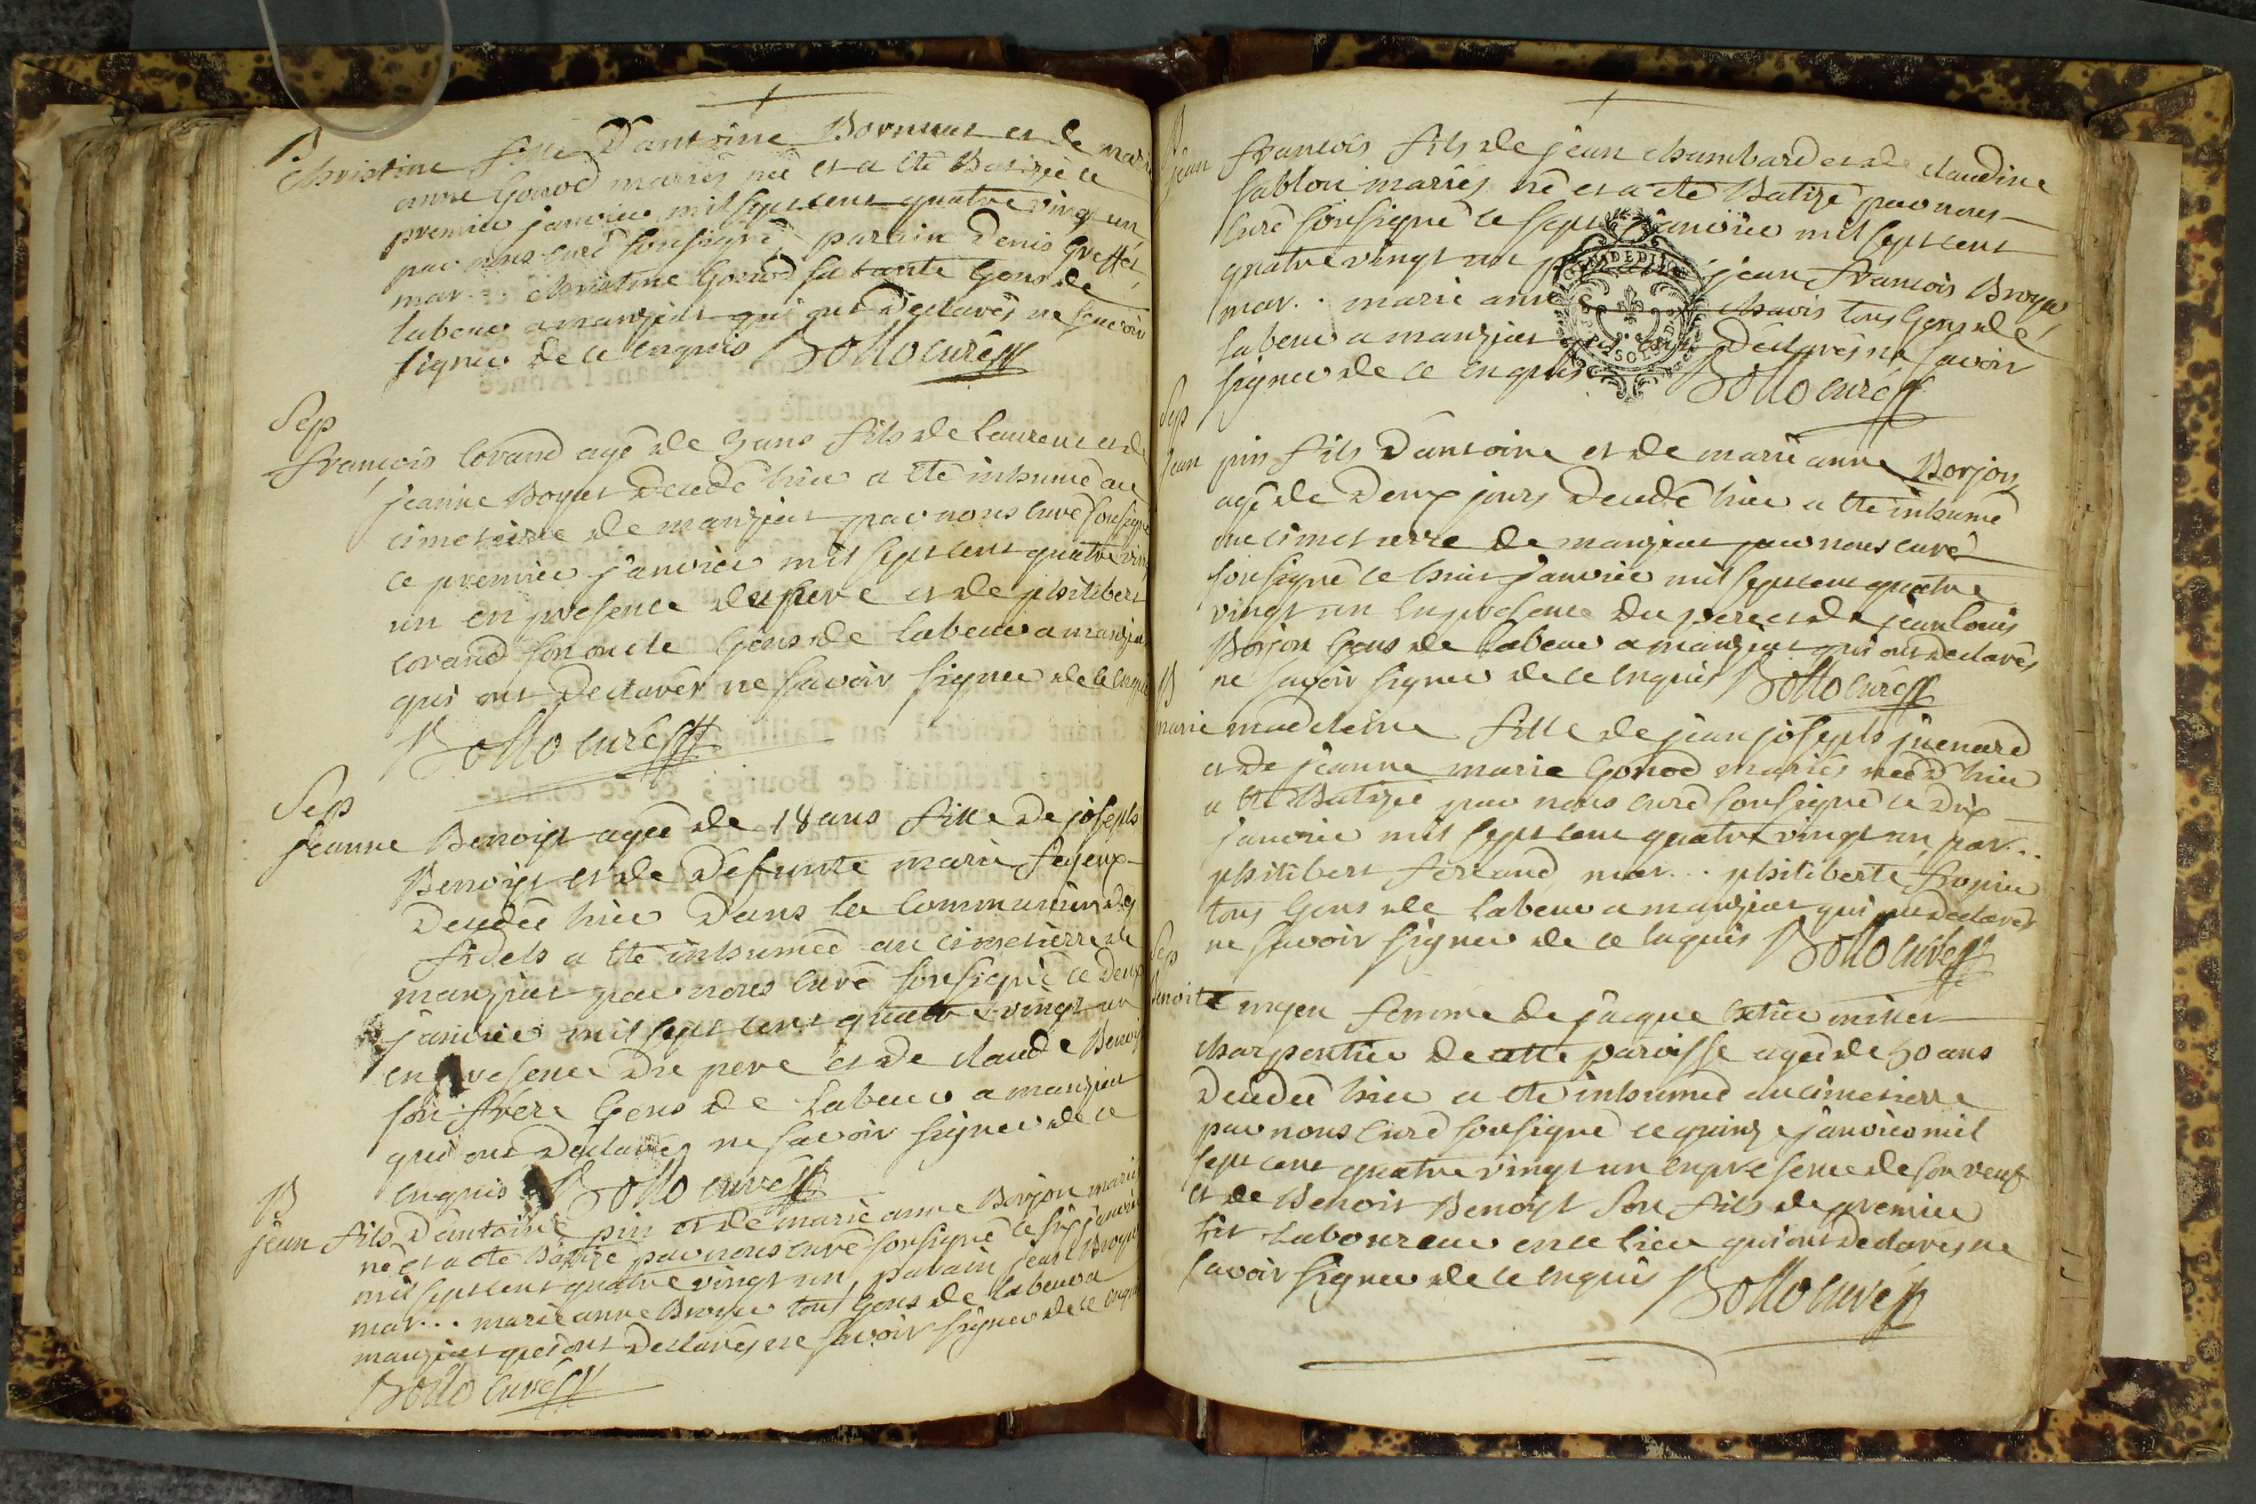 B
Christine fille D'antoine Bornuat et de marie
anne Gonod mariés née et a été Batizée ce
premier janvier mil sept cent quatre vingt un
par nous curé sousigné, parain Denis Greffet,
mar.. christine Gonod sa tante Gens de
labeur a manziat qui ont Déclarés ne sçavoir
signer de ce enquis Bollo curé
Sep
françois Corand agé de 3 ans fils de laurent et de
jeanne Boyat Decedé hier a été inhumé au
cimetierre de manziat par nous curé sousigné
ce premier janvier mil sept cent quatre vingt
un en presence du pere et de philibert
Corand son oncle Gens de labeur a manziat
qui ont Declarés ne savoir signer de ce enquis
Bollo curé
Sep
jeanne Benoist agée de 18 ans fille de joseph
Benoist et de Défunte marie
Decedée hier Dans la Communion des
fidels a été inhumée au cimetierre de
manziat par nous curé sousigné ce deux
janvier mil sept cent quatre vingt un
en presence Du pere et De claude Benoist
son frére Gens de labeur a manziat
qui ont Declarés ne savoir signer de ce
enquis Bollo curé
B
jean fils D'antoine pin et de marie anne Borjon mariés
né et a été Batizé par nous curé sousigné ce six janvier
mil sept cent quatre vingt un, parain jean Broyer
mar... marie anne Broyer tous Gens de labeur a
manziat qui ont Declarés ne savoir signer de ce enquis
Bollo curé
B
jean françois fils de jean chambard et de claudine
sablon mariés né et a été Batizé par nous
curé sousigné ce sept janvier mil sept cent
quatre vingt un jean françois Broyer
mar.. marie anne chavis tous Gens de
labeur a manziat qui ont Déclarés ne savoir
signer de ce enquis Bollo curé
Sep
jean pin fils D'antoine et de marie anne Borjon
agé de Deux jours Decedé hier a été inhumé
au cimetierre de manziat par nous curé
sousigné ce huit janvier mil sept cent quatre
vingt un en presence Du pere et de jean louis
Borjon Gens de labeur a manziat qui ont Declarés
ne savoir signer de ce enquis Bollo curé
B
marie madeleine fille de jean joseph juenard
et De jeanne marie Gonod mariés née D'hier
a été Batizée par nous curé sousigné ce Dix
janvier mil sept cent quatre vingt un, par..
philibert feriand, mar... philiberte
tous Gens de labeur a manziat qui ont declarés
ne savoir signer de ce enquis Bollo curé
Sep
Benoite femme de jacque
charpentier de cette paroisse agée de 50 ans
Decedée hier a été inhumée au cimetierre
par nous curé sousigné ce quinze janvier mil
sept cent quatre vingt un en presence de son veuf
et de Benoit Benoist son fils de premier
lit laboureur en ce lieu qui ont declarés ne
savoir signer de ce enquis Bollo curé